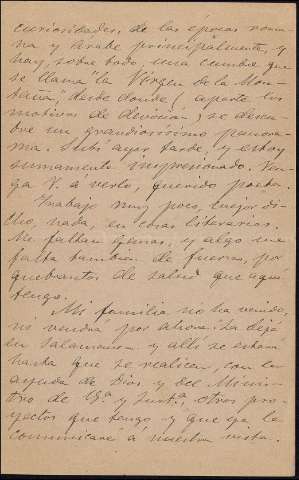 curiosidades, de las épocas roma-
na y árabe principalmente, y
hay, sobre todo, una cumbre que
se llama "la Virgen de la Mon-
taña," desde donde (aparte los
motivos de devoción) se descu-
bre un grandiosísimo panora-
ma. Subí ayer tarde, y estoy
sumamente impresionado. Ven-
ga V. a verlo, querido poeta.
Trabajo muy poco, mejor di-
cho, nada, en cosas literarias.
Me faltan ganas, y algo me
falta tambien de fuerzas, por
quebrantos de salud que aquí
tengo.
Mi familia no ha venido,
ni vendrá por ahora. La dejé
en Salamanca y allí se estará
hasta que se realicen, con la
ayuda de Dios y del Minis-
tro de G.ª y Just.ª, otros pro-
yectos que tengo y que ya le
comunicaré a nuestra vista.